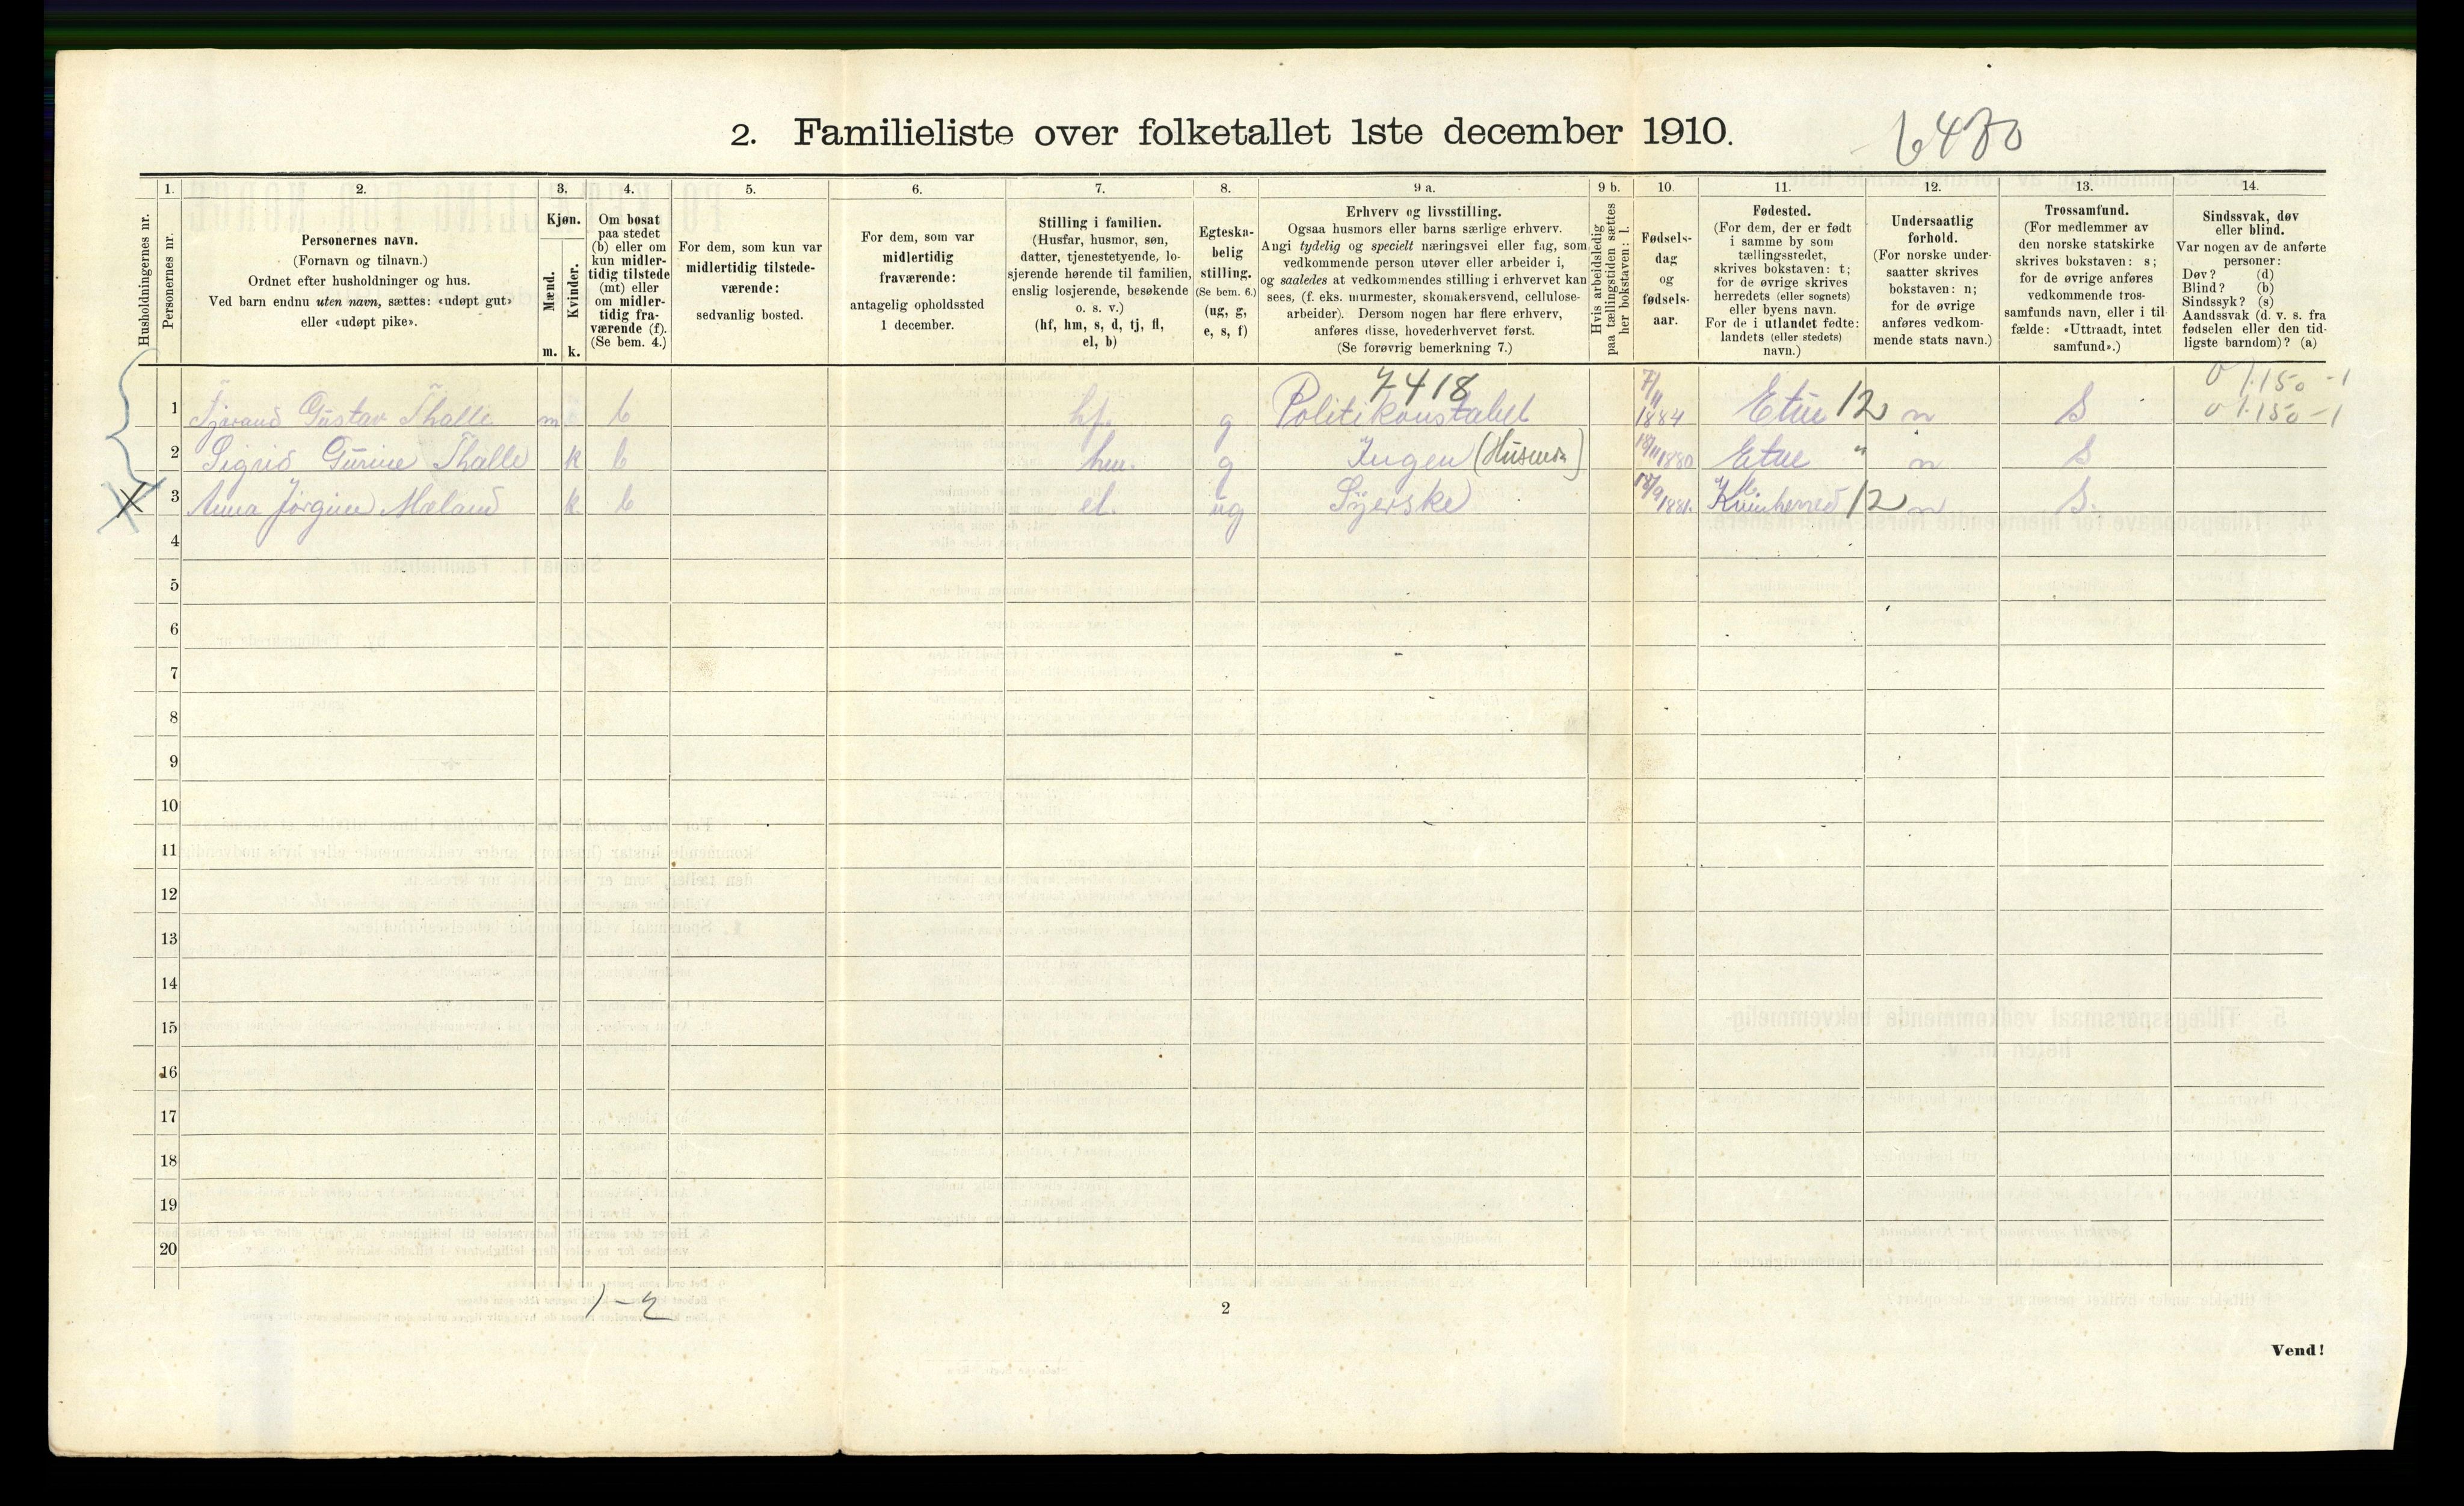 2. Familieliste over folketallet 1ste december 1910.
6480
1. 2. 3. 4. 5. 6. 7. 8. 9 a. 9 b. 10. 11. 12. 13. 14.
Husholdningernes nr.
Personernes nr.
Personernes navn.
(Fornavn og tilnavn.)
Ordnet efter husholdninger og hus.
Ved barn endnu uten navn, sættes: «udøpt gut»
eller «udøpt pike».
Kjøn.
Mænd.
Kvinder.
m. k.
Om bosat
paa stedet
(b) eller om
kun midler-
tidig tilstede
(mt) eller
om midler-
tidig fra-
værende (f).
(Se bem. 4.)
For dem, som kun var
midlertidig tilstede-
værende:
sedvanlig bosted.
For dem, som var
midlertidig
fraværende:
antagelig opholdssted
1 december.
Stilling i familien.
(Husfar, husmor, søn,
datter, tjenestetyende, lo-
sjerende hørende til familien,
enslig losjerende, besøkende
o. s. v.)
(hf, hm, s, d, tj, fl,
el, b)
Egteska-
belig
stilling.
(Se bem. 6.)
(ug, g,
e, s, f)
Erhverv og livsstilling.
Ogsaa husmors eller barns særlige erhverv.
Angi tydelig og specielt næringsvei eller fag, som
vedkommende person utøver eller arbeider i,
og saaledes at vedkommendes stilling i erhvervet kan
sees, (f. eks. murmester, skomakersvend, cellulose-
arbeider). Dersom nogen har flere erhverv,
anføres disse, hovederhvervet først.
(Se forøvrig bemerkning 7.)
Hvis arbeidsledig
paa tællingstiden sættes
her bokstaven: l.
Fødsels-
dag
og
fødsels-
aar.
Fødested.
(For dem, der er født
i samme by som
tællingsstedet,
skrives bokstaven: t;
for de øvrige skrives
herredets (eller sognets)
eller byens navn.
For de i utlandet fødte:
landets (eller stedets)
navn.)
Undersaatlig
forhold.
(For norske under-
saatter skrives
bokstaven: n;
for de øvrige
anføres vedkom-
mende stats navn.)
Trossamfund.
(For medlemmer av
den norske statskirke
skrives bokstaven: s;
for de øvrige anføres
vedkommende tros-
samfunds navn, eller i til-
fælde: «Uttraadt, intet
samfund».)
Sindssvak, døv
eller blind.
Var nogen av de anførte
personer:
Døv? (d)
Blind? (b)
Sindssyk? (s)
Aandssvak (d. v. s. fra
fødselen eller den tid-
ligste barndom)? (a)
7418
1 Gustav Thalle m b hf. g Politikonstabel 7/11 1884 Etne 12 n S
2 Sigrid Gurine Thalle k b hm. g Ingen (Husmor) 18/11 1880 Etne " n S
3 Anna Jørgine Mæland k b el. ug Syerske 18/9 1881. Kvinherred 12 n S.
4
5
6
7
8
9
10
11
12
13
14
15
16
17
18
19
20
1-2
2
Vend!